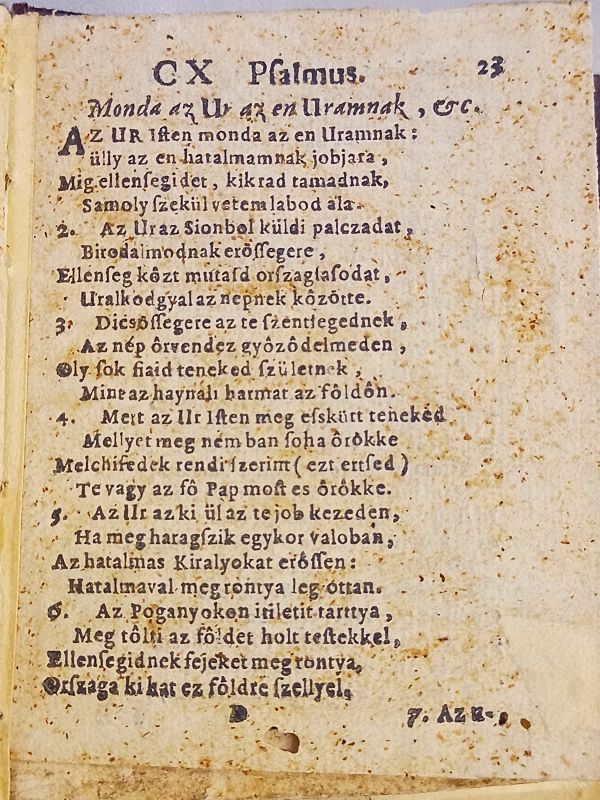 CX Psalmus. 23
Monda az Ur az en Uramnak, &c.
AZ UR Iſten monda az en Uramnak:
ülly az en hatalmamnak jobjara,
Mig ellenſegidet, kik rad tamadnak,
Samoly ſzekül vetem labod ala.
2. Az Ur az Sionbol küldi palczadat,
Birodalmodnak erôſſegere,
Ellenſeg kôzt mutaſd orſzaglaſodat,
Uralkodgyal az nepnek kôzôtte.
3. Dicsôſſegere az te ſzentſegednek,
Az nép ôrvendez gyôzôdelmeden,
Oly ſok fiaid teneked ſzületnek,
Mint az haynali harmat az fôldôn.
4. Mert az Ur Iſten meg eſskürt teneked
Mellyet meg nem ban ſoha ôrôkke
Melchiſedek rendi ſzerint (ezt ertſed)
Te vagy az fô Pap moſt es ôrôkke.
5. Az Ur az ki ül az te job kezeden,
Ha meg haragſzik egykor valoban,
Az hatalmas Kiralyokat erôſſen:
Hatalmaval meg rontya leg ottan.
6. Az Poganyokon itiletit tarttya,
Meg tôlti az fôldet holt teſtekkel,
Ellenſegidnek fejeket meg rontya,
Orſzaga ki hat ez fôldre ſzellyel.
D 7. Az u-,